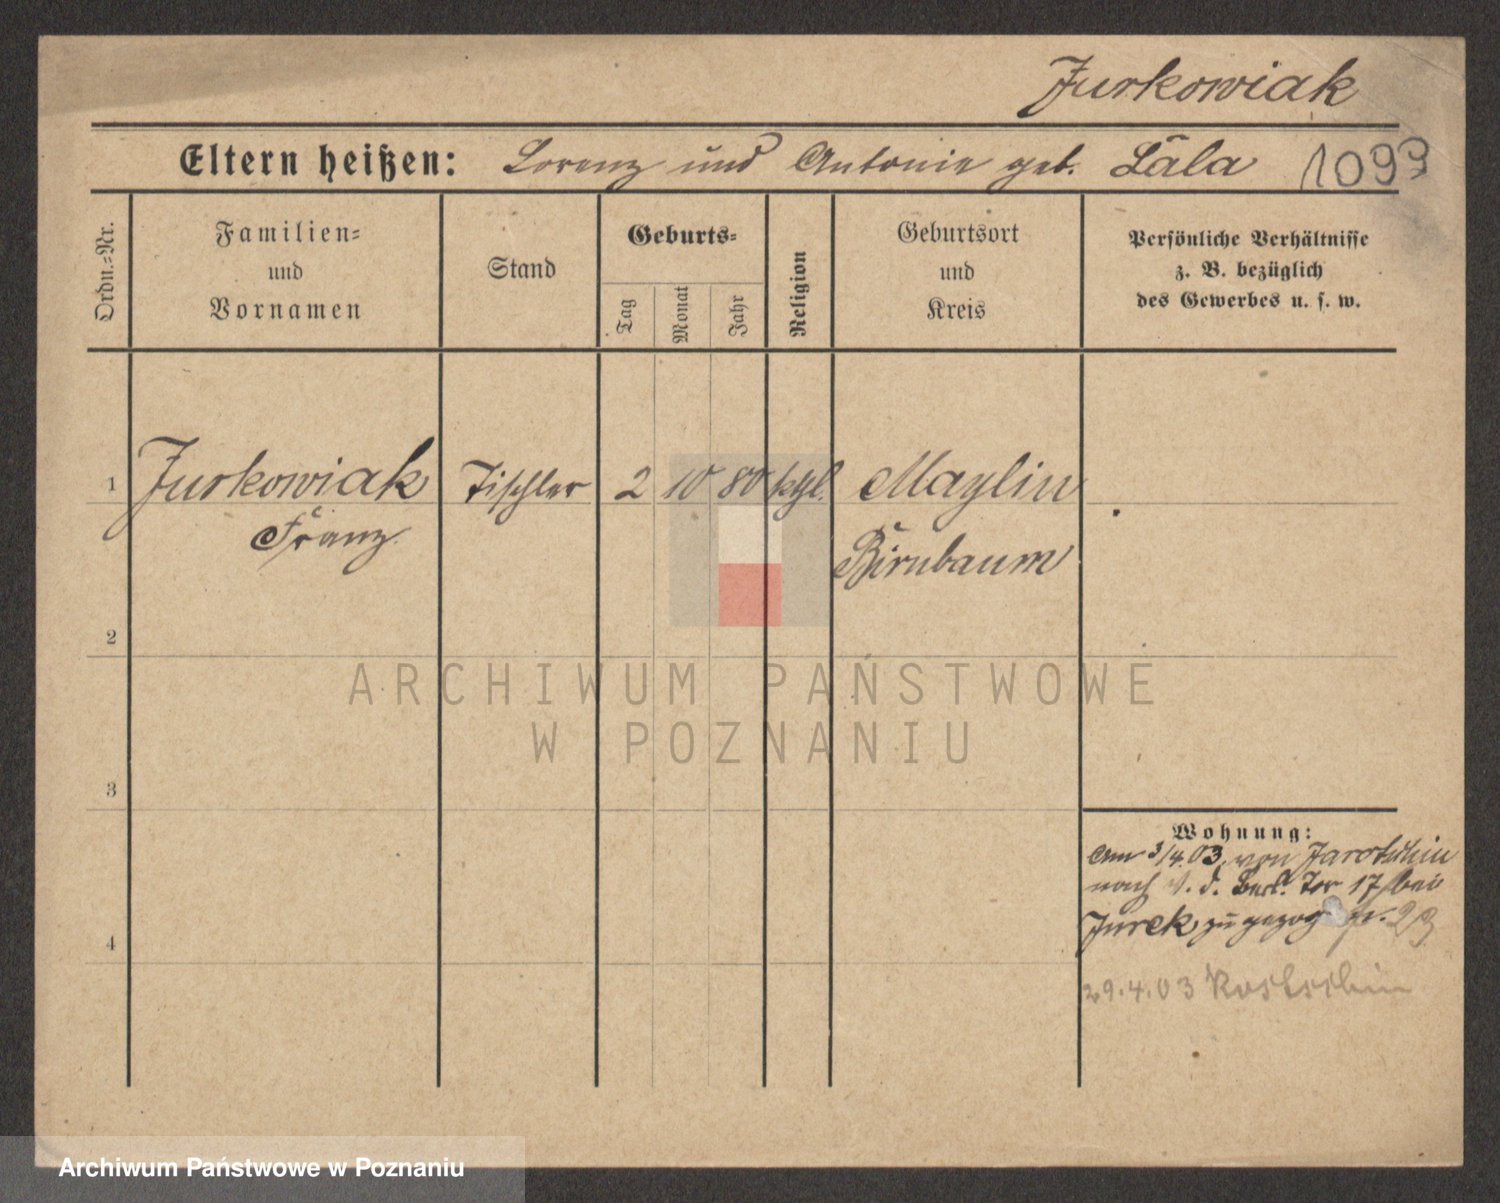 Jurkowiak
Eltern heißen: Lorenz und Antonie geb. Lala 1093
Ordn.-Nr.
Familien-
und
Vornamen
Stand
Geburts-
Tag
Monat
Jahr
Religion
Geburtsort
und
Kreis
Persönliche Verhältnisse
z. B. bezüglich
des Gewerbes u. s. w.
1 Jurkowiak Tischler 2 10 80 ktgl. Maylin
Franz Birnbaum
2
ARCHIWUM PAŃSTWOWE
W POZNANIU
3
Wohnung:
Am 3/4.03. von Jarotschin
nach V. d. Berl. Tor 17 bei
Jurek zugezog
4
29.4.03 Kostschin
Archiwum Państwowe w Poznaniu